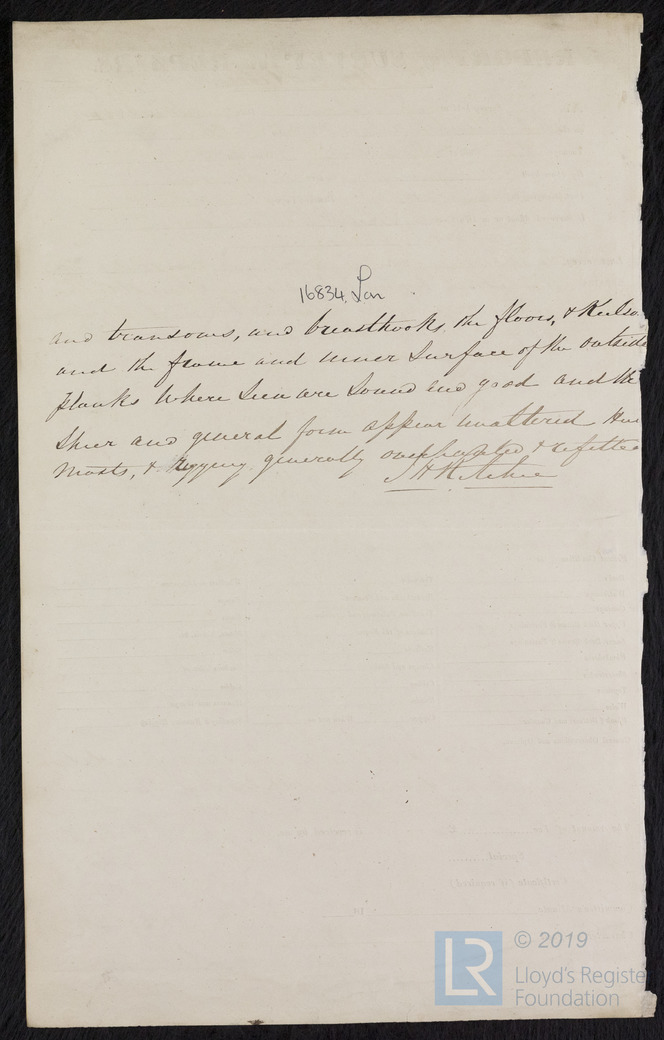 16834 Lon
and transoms, and breasthooks, the floors, & Keelso
and the frame and inner Surface of the outside
planks where Seen are Sound and good and the
Sheer and general form appear unaltered Her
Masts, & rigging generally overhauled & refitted
J H Ritchie
© 2019
LR
Lloyd's Registe
Foundation